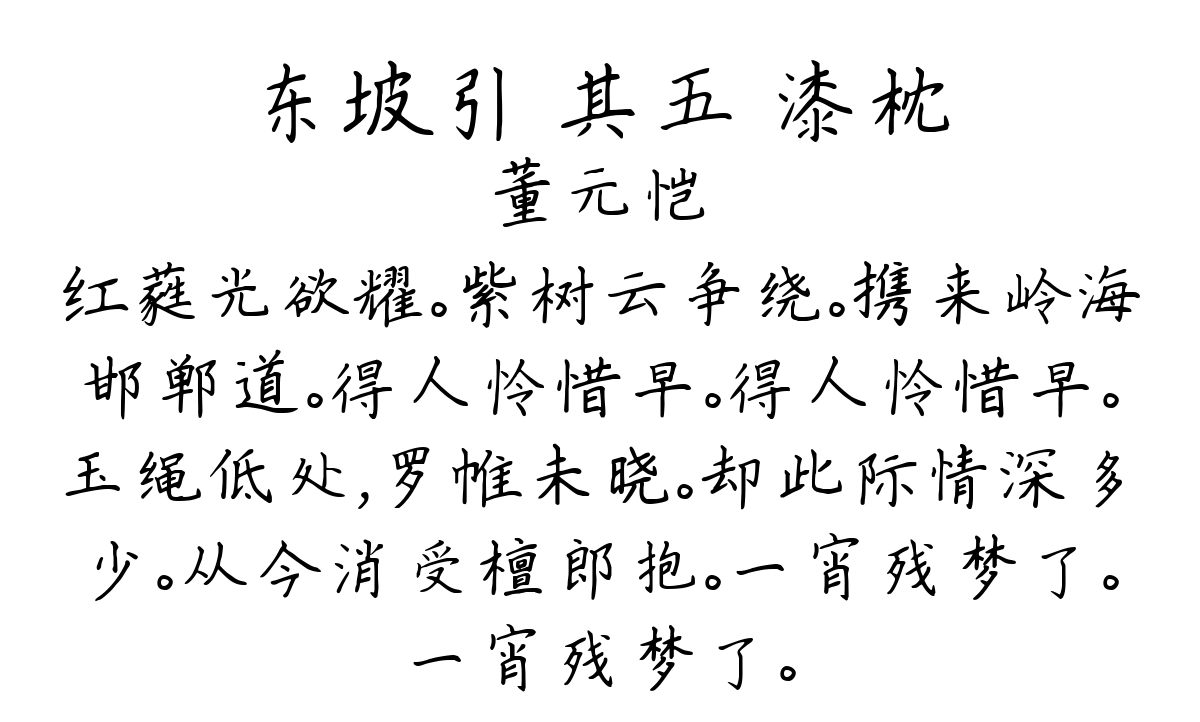 东坡引 其五 漆枕
董元恺
红蕤光欲耀。紫树云争绕。携来岭海
邯郸道。得人怜惜早。得人怜惜早。
玉绳低处,罗帷未晓。却此际情深多
少。从今消受檀郎抱。一宵残梦了。
一宵残梦了。